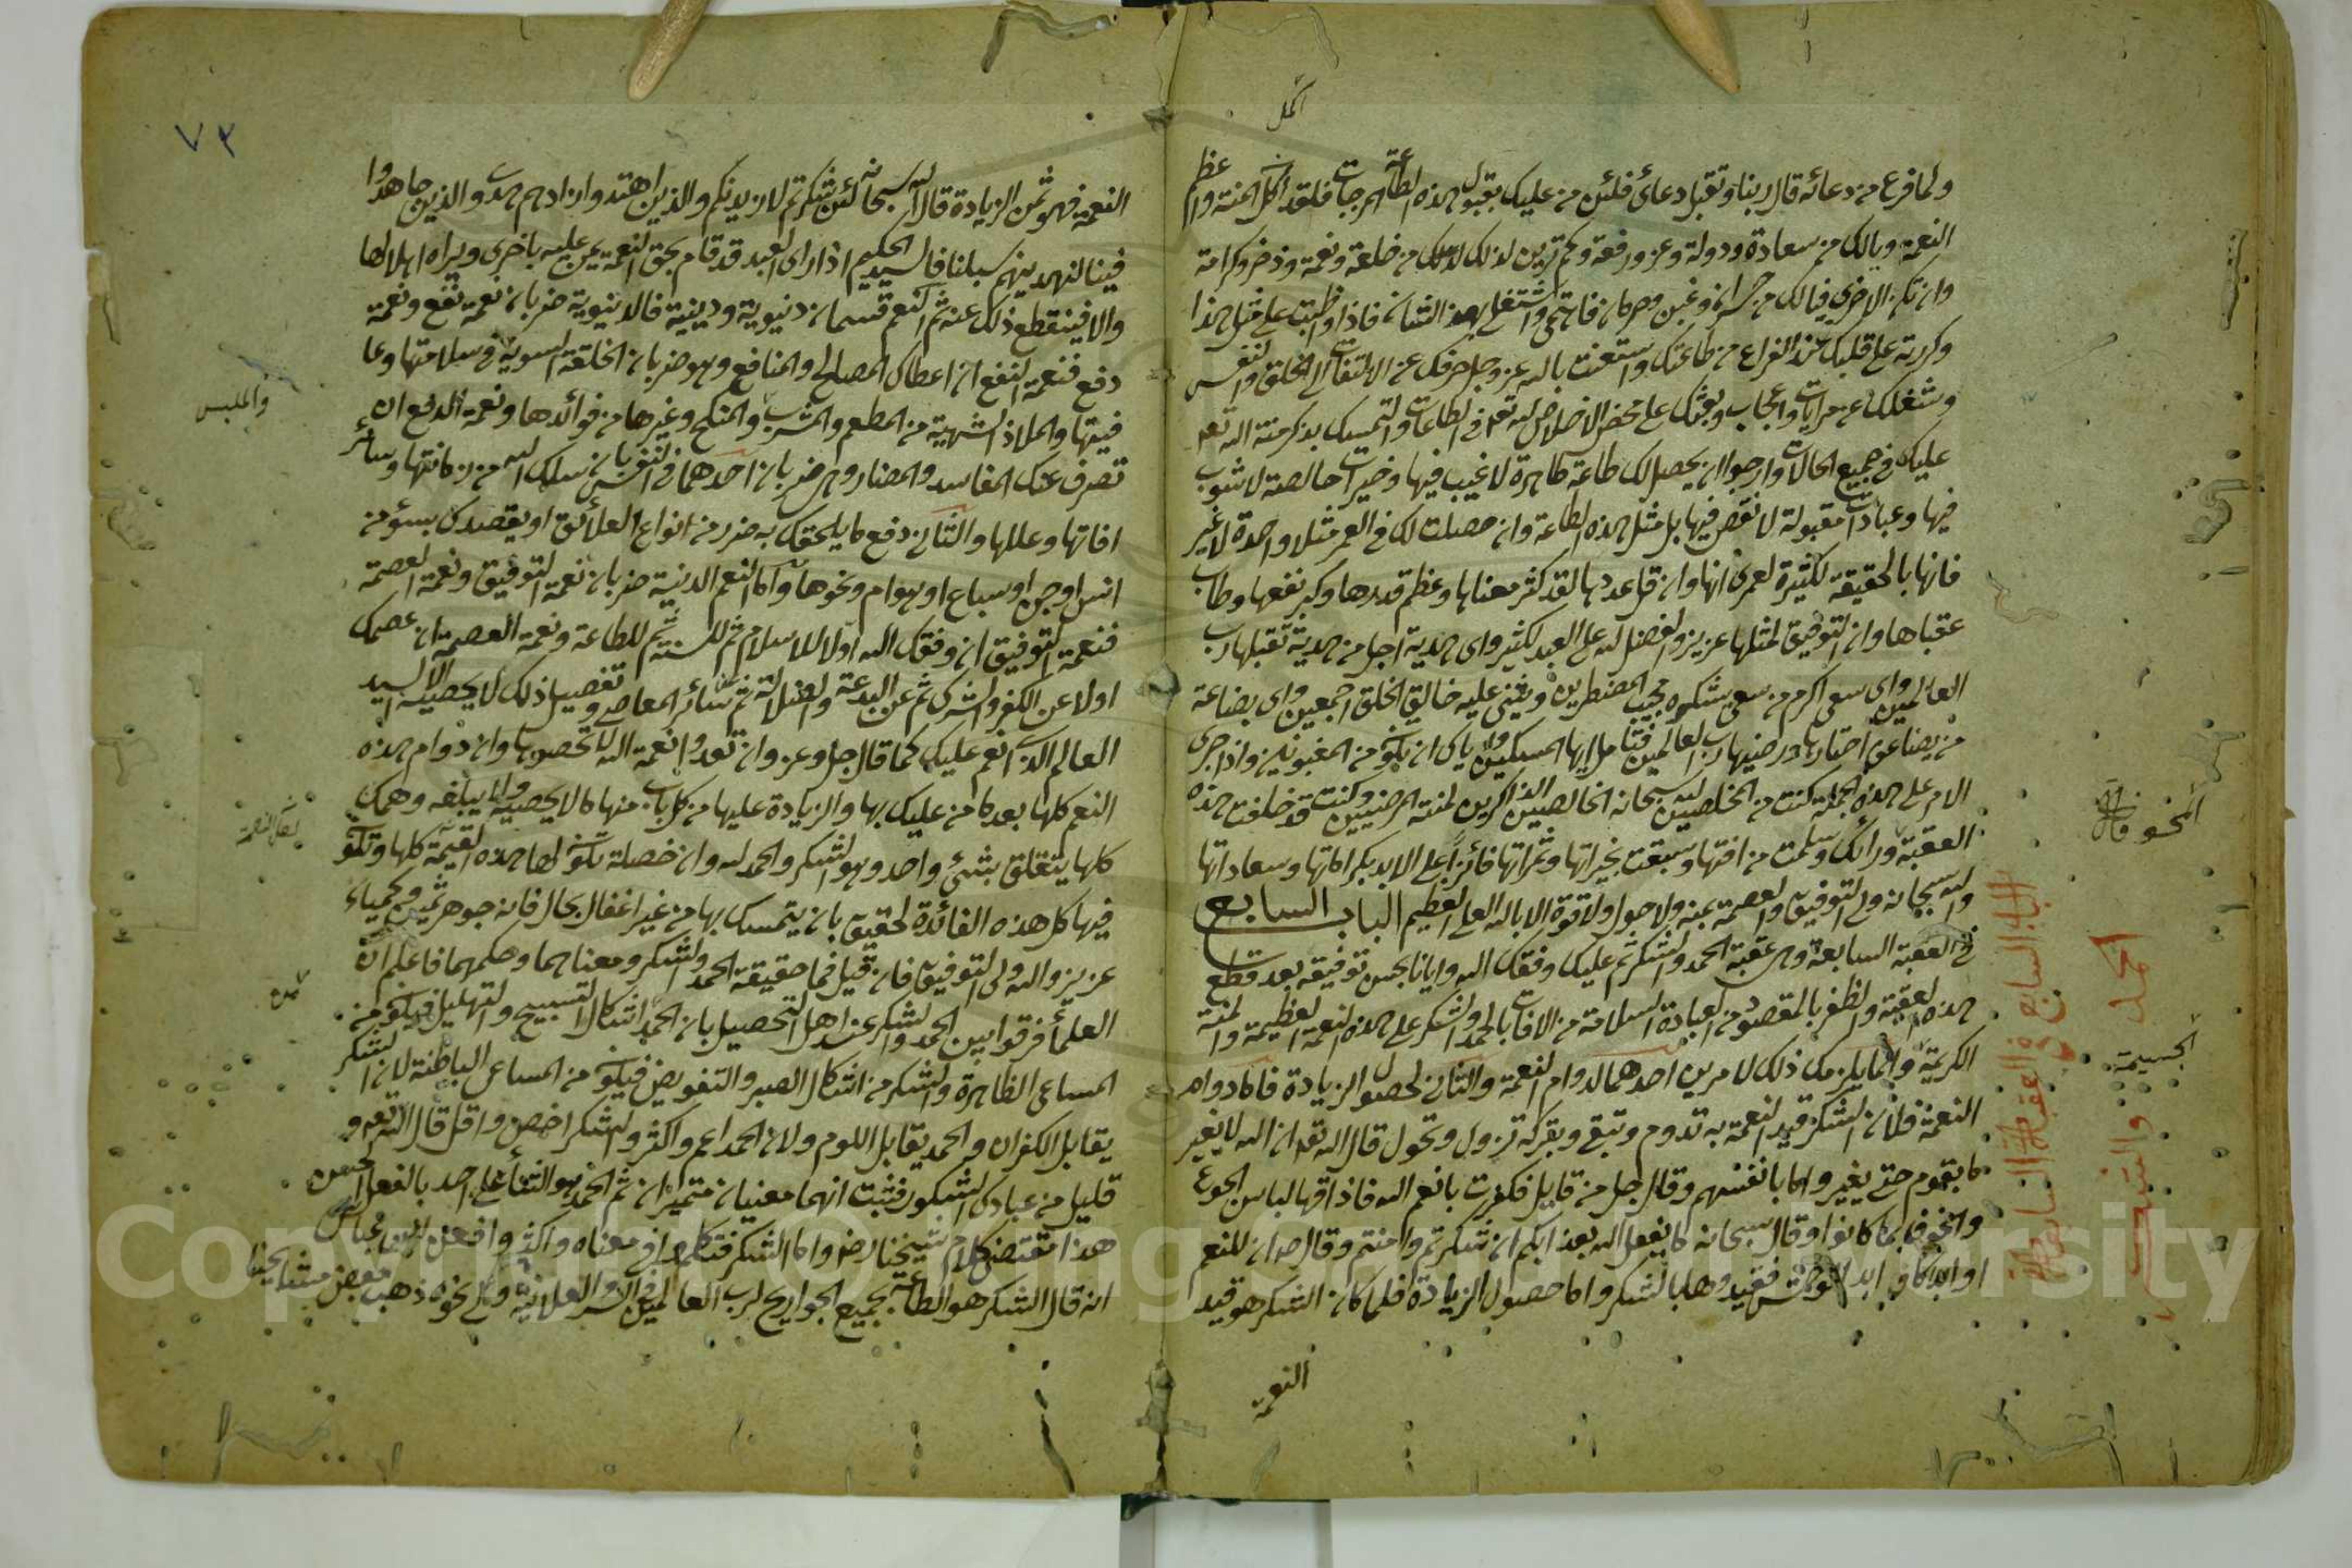 اكمل
ولما فرغ من دعائه قال ربنا وتقبل دعائ فلئن من عليك بقبول هذه الطاعة المرجات فلقد اكمل المنة واعظم
النعمة ويالك من سعادة ودولة وعز ورفعة وكم ترين لذلك من خلعة ونعمة وذخر وكرامة
وان تكن الاخرى فيالك من خسران وغبن وحرمان فاهتمى واشتغلى بهذا الشان فاذا واظبت على مثل هذا
وكررته على قلبك عند الفراغ من طاعتك واستعنت بالله عز وجل صرفك عن الالتفات الى الخلق والنفس
وشغلك عن مرايات واعجاب وبعثك على محض الاخلاص لله تعم فى الطاعات والتمسك بذكر منة الله تعم
عليك فى جميع الحالات وارجوا ان يحصل لك طاعة طاهرة لا غيب فيها وخيرات خالصة لا شوب
فيها وعبادات مقبولة لا نقص فيها بل مثل هذه الطاعة وان حصلت لك فى العمر مثلا واحدة لا غير
فانها بالحقيقة لكثيرة لعمرى انها وان قل عددها لقد كثر معناها وعظم قدرها وكبر نفعها وطاب
عقباها وان التوفيق لمثلها عزيز والفضل لله على العبد لكثير واى هدية اجل من هدية تقبلها رب
العالمين واى سعى اكرم من سعى يشكره مجيب المضطرين ويثنى عليه خالق الخلق اجمعين واى بضاعة
من بضاعة اختارها ورضيها رب العالمين فتامل ايها المسكين واياك ان تكون من المغبونين واذا جرى
الامر على هذه الجملة كنت من المخلصين لله سبحانه الخالصين الذاكرين لمنته المرضيين وكنت قد خلفت هذه
العقبة ورائك وسلمت من افتها وسبقت بخيراتها وثمراتها فائزا على الابد بكراماتها وسعاداتها
والله سبحانه ولى التوفيق والعصمة بمنه ولا حول ولا قوة الا بالله العلى العظيم الباب السابع
فى العقبة السابعة وهى عقبة الحمد والشكر ثم عليك وفقك الله وايانا بحسن توفيقه بعد قطع
هذه العقبة والظفر بالمقصود من العبادة السلامة من الافات بالحمد والشكر على هذه النعمة العظيمة والمنة
الكريمة وانما يلزمك ذلك لامرين احدهما لدوام النعمة والثانى لحصول الزيادة فاما دوام
النعمة فلان الشكر قيد النعمة به تدوم وتبقى وبتركه تزول وتحول قال الله تعم ان الله لا يغير
ما بقوم حتى يغيروا ما بانفسهم وقال جل من قايل فكفرت بانعم الله فاذاقها لباس الجوع
والخوف بما كانوا وقال سبحانه ما يفعل الله بعذابكم ان شكرتم وامنتم وقال صم ان للنعم
اوابد كاوابد الوحش فقيدوها بالشكر واما حصول الزيادة فلما كان الشكر هو قيد
النعمة
الباب السابع فى العقبة السابعة
الحمد والشكر
الجسيمة
٧٣
النعمة فهو ثمن الزيادة قال الله سبحانه لئن شكرتم لازيدنكم والذين اهتدوا زادهم هدى والذين جاهدوا
فينا لنهدينهم سبلنا فالسيد الحكيم اذا راى العبد قد قام بحق النعمة يمن عليه باخرى ويراه اهلا لها
والا فينقطع ذلك عنه ثم النعم قسمان دنيوية ودينية فالدنيوية ضربان نعمة نفع ونعمة
دفع فنعمة النفع ان اعطاك المصالح والمنافع وهو ضربان الخلقة السوية فى سلامتها وعا
فيتها والملاذ الشهية من المطعم والمشرب والمنكح وغيرها من فوائدها ونعمة الدفع ان
تصرف عنك المفاسد والمضار وهى ضربان احدهما فى النفس بان سلك الله من زمانتها وسائر
افاتها وعللها والثانى دفع ما يلحقك به ضرر من انواع العلائق او يقصدك بسوء من
انس او جن او سباع او هوام ونحوها واما النعم الدينية ضربان نعمة التوفيق ونعمة العصمة
فنعمة التوفيق ان وفقك الله اولا للاسلام ثم للسنة ثم للطاعة ونعمة العصمة ان عصمك
اولا عن الكفر والشرك ثم عن البدعة والضلالة ثم عن سائر المعاصى وتفصيل ذلك لا يحصيه الا السيد
العالم الذى انعم عليك كما قال جل وعز وان تعدوا نعمة الله لا تحصوها وان دوام هذه
النعم كلها بعد ما من عليك بها والزيادة عليها من كل باب منها ما لا يحصيه ولا يبلغه وهمك
كلها يتعلق بشئ واحد وهو الشكر والحمد لله وان خصلة تكون لها هذه القيمة كلها وتكون
فيها كل هذه الفائدة لحقيق بان يتمسك بها من غير اغفال بحال فانه جوهر ثمين وكيمياء
عزيز والله ولى التوفيق فان قيل فما حقيقة الحمد والشكر ومعناهما وحكمهما فاعلم ان
العلماء فرقوا بين الحمد والشكر عند اهل التحصيل بان الحمد اشكال التسبيح والتهليل فيكون من
المساعى الظاهرة والشكر من اشكال الصبر والتفويض فيكون من المساعى الباطنة لان الشكر
يقابل الكفران والحمد يقابل اللوم ولان الحمد اعم واكثر والشكر اخص واقل قال الله تعم و
قليل من عبادى الشكور فثبت انهما معنيان متميزان ثم الحمد هو الثناء على احد بالفعل الحسن
هذا مقتضى كلام شيخنا رض واما الشكر فتكلموا فى معناه واكثروا فعن ابن عباس
انه قال الشكر هو الطاعة بجميع الجوارح لرب العالمين فى السر والعلانية والى نحوه ذهب بعض مشايخنا
والملبس